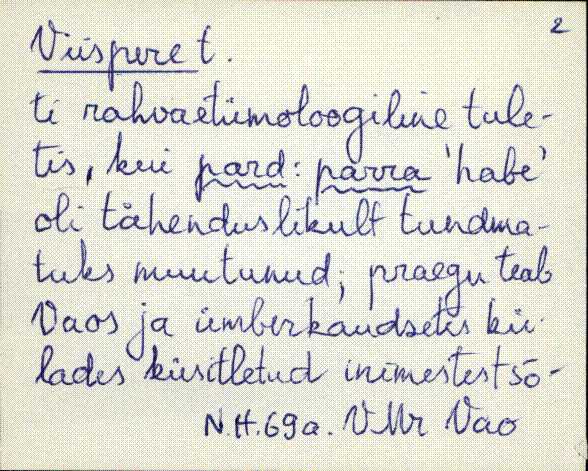 2
Viispere t.
ti rahvaetümoloogiline tule-
tis, kui pard: parra 'habe'
oli tähenduslikult tundma-
tuks muutunud; praegu teab
Vaos ja ümberkaudsetes kü-
lades küsitletud inimestest sõ-
N.H.69a. VMr Vao